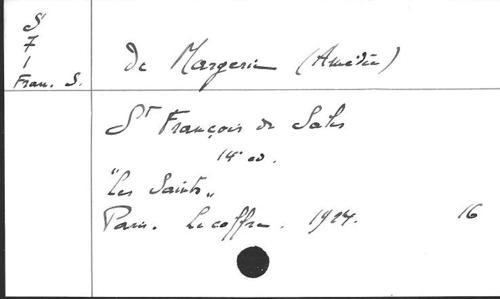 S
7
1
Fran. S.
De Margerie (Amédée)
St François de Sales
14e ed.
"Les Saints"
Paris. Lecoffre. 1924. 16